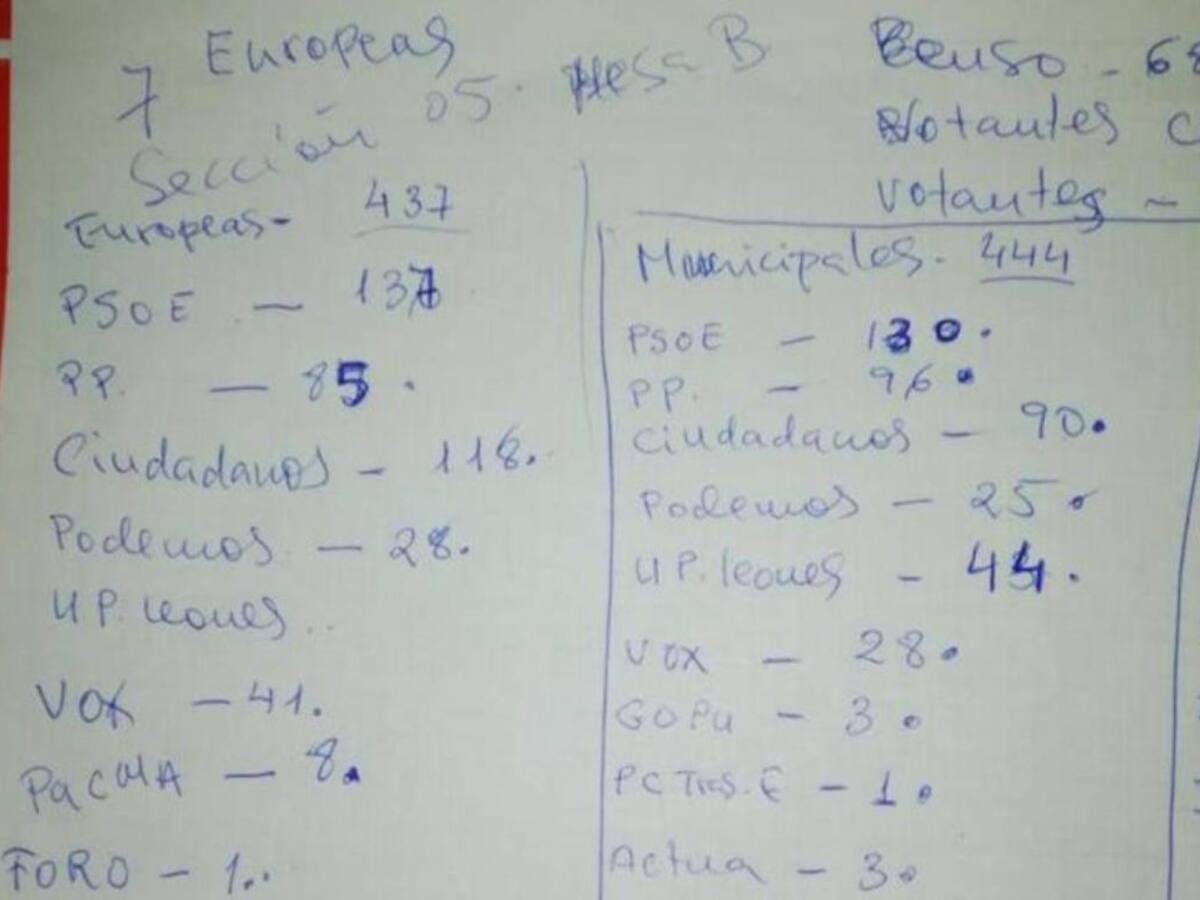 Europeas
7
Sección 05. Mesa B
Europeas - 437
PSOE - 137
PP. - 85.
Ciudadanos - 118.
Podemos - 28.
U P. leones..
VOX - 41.
PACMA - 8.
FORO - 1..
Censo - 68
Votantes C
Votantes -
Municipales. 444
PSOE - 130.
PP. - 96.
Ciudadanos - 90.
Podemos - 25.
U P. leones - 44.
VOX - 28.
GOPU - 3.
PC Tras. E - 1.
Actua - 3.